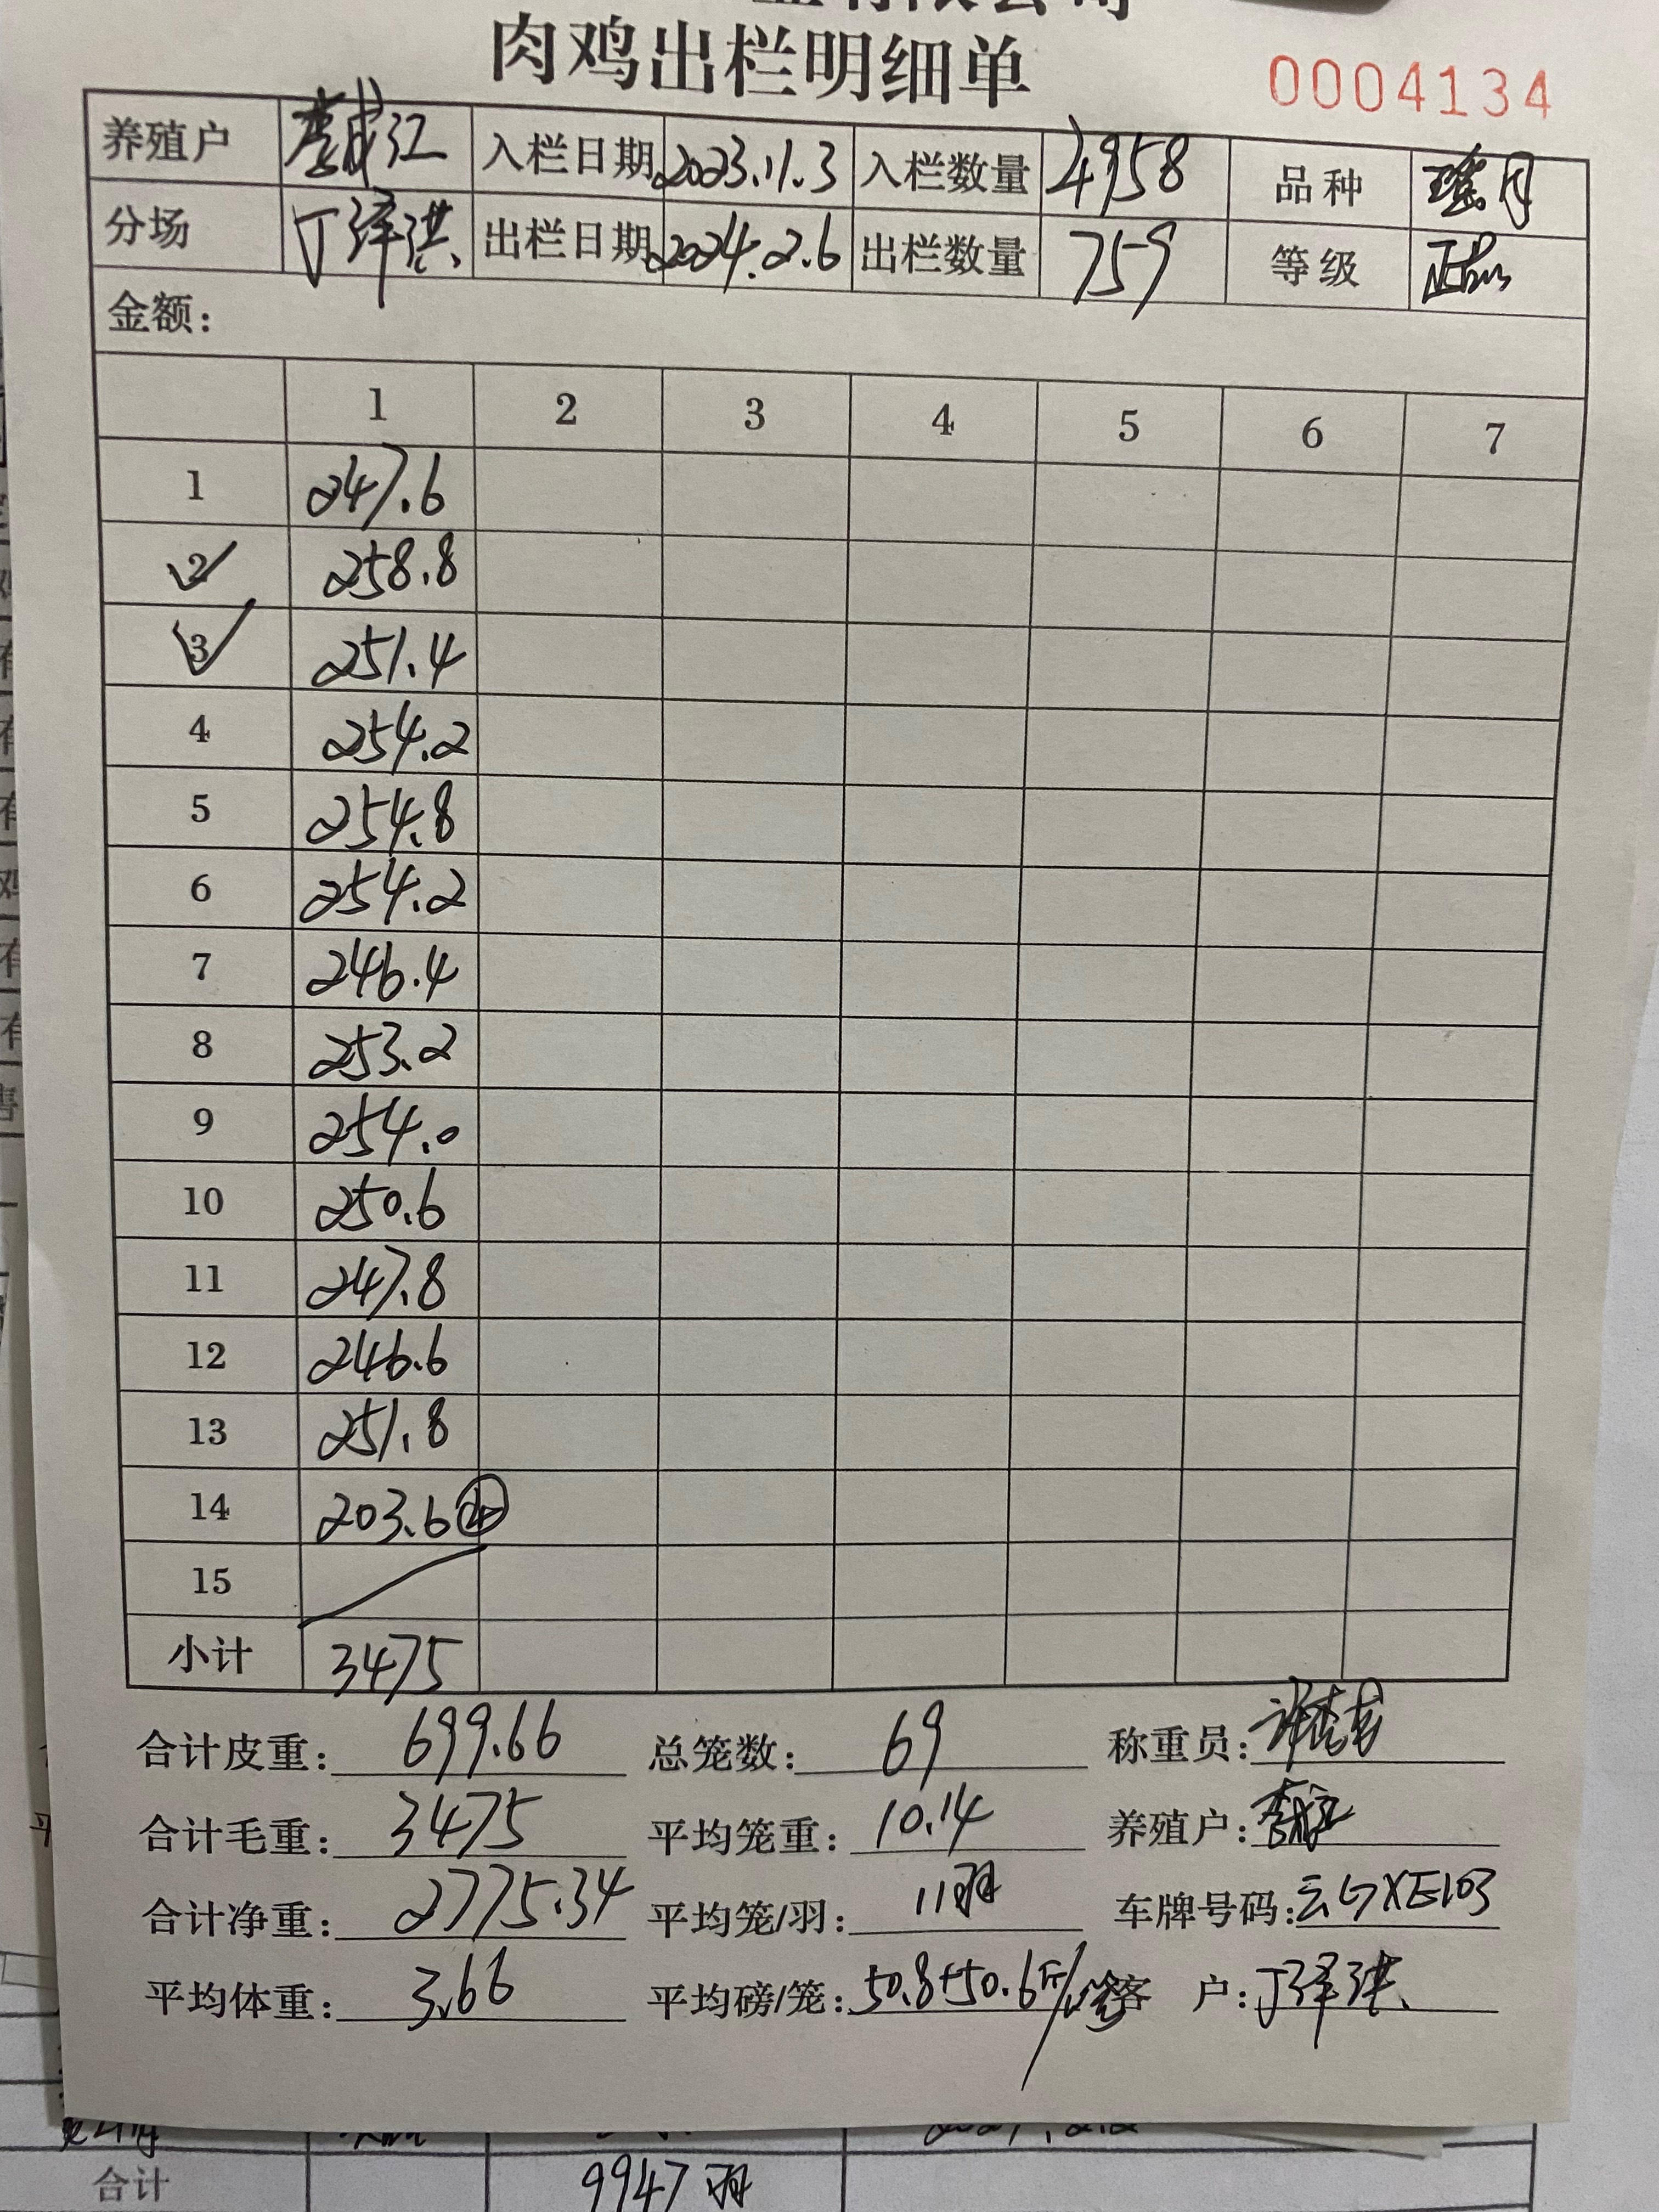 肉鸡出栏明细单
0004134
养殖户 李成江 入栏日期 2023.11.3 入栏数量 4958 品种 瑶月
分场 丁泽洪 出栏日期 2024.2.6 出栏数量 759 等级 正品
金额：
1 2 3 4 5 6 7
1 247.6
2 258.8
3 251.4
4 254.2
5 254.8
6 254.2
7 246.4
8 253.2
9 254.0
10 250.6
11 247.8
12 246.6
13 251.8
14 203.6 ④
15
小计 3475
合计皮重： 699.66 总笼数： 69 称重员：
合计毛重： 3475 平均笼重： 10.14 养殖户：
合计净重： 2775.34 平均笼/羽： 11羽 车牌号码： 云GXE103
平均体重： 3.66 平均磅/笼： 50.8+50.6斤/ 客 户： 丁泽洪
合计 9947羽